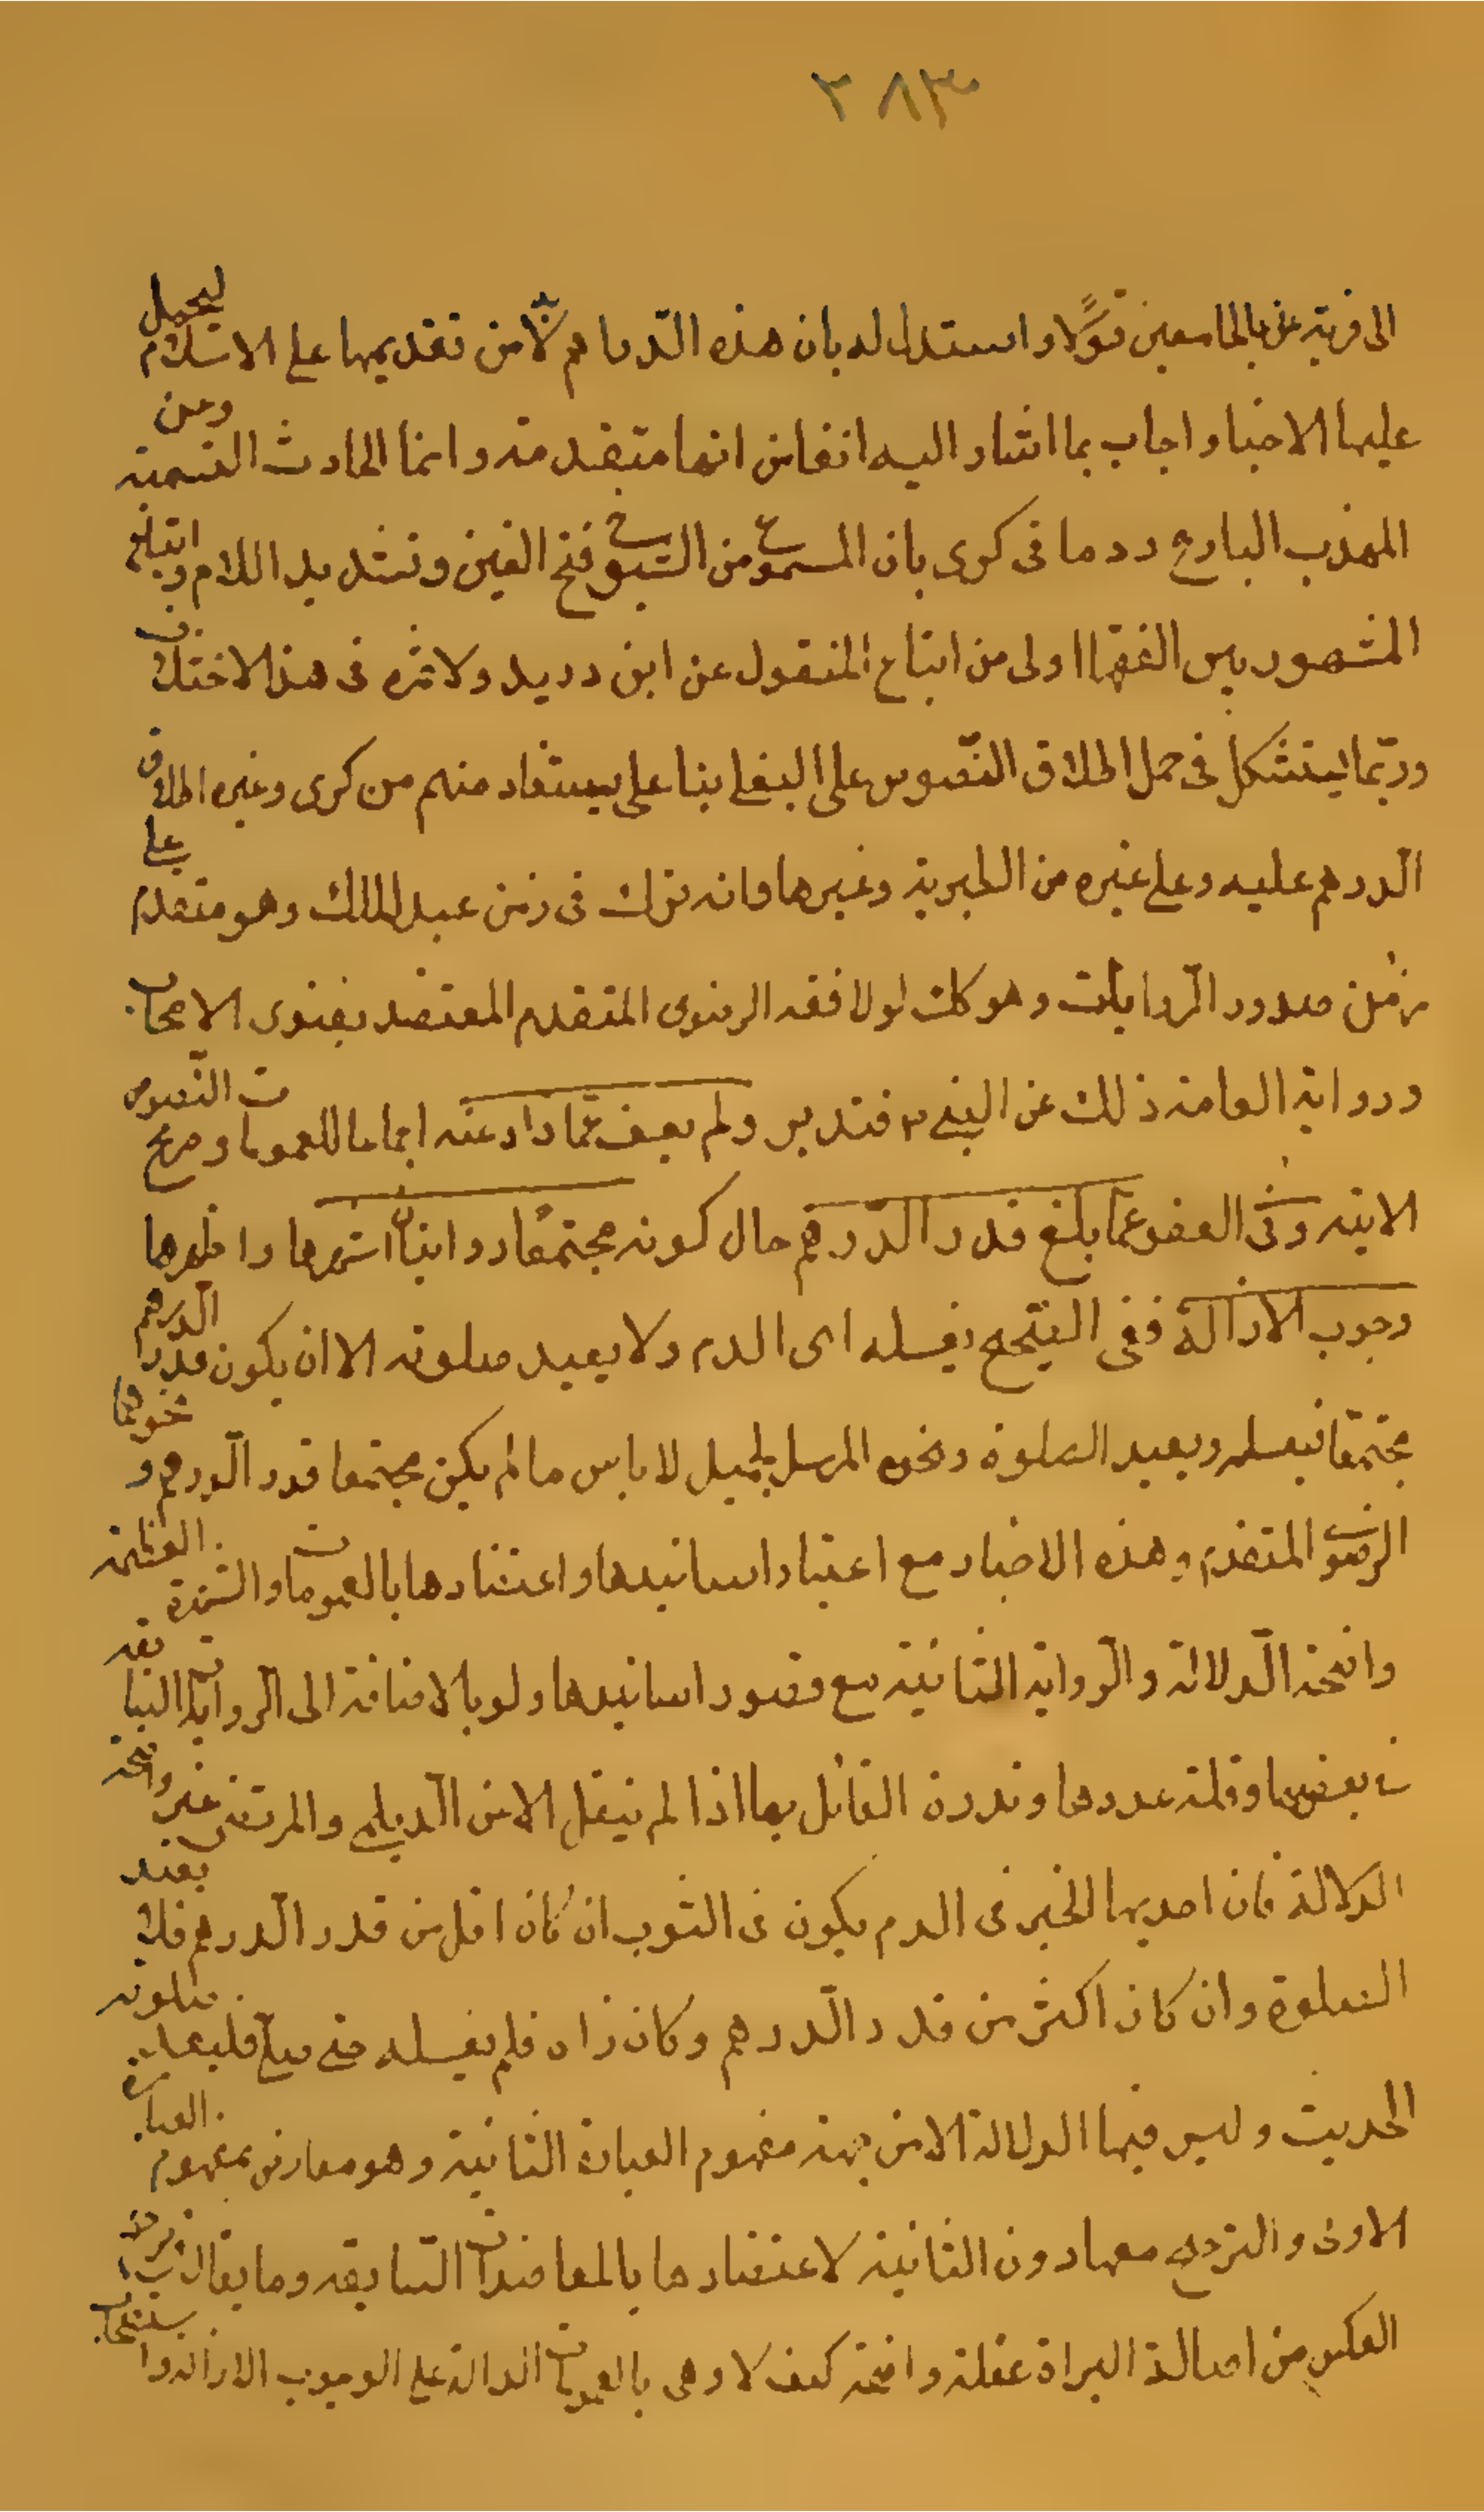 ٢٨٣
الى قرية عن بالجامعين قولا واستدل له بان هذه الدراهم لا بد من تقديمها على الاسلام ليحمل
عليها الاخبار واجاب بما اشار اليه انفا من انها متقدمة وانما الحادث التسمية وعن
المهذب البارع رد ما فى كرى بان المسموع من الشيوخ فتح الغين وتشديد اللام واتباع
المشهور بين الفقها اولى من اتباع المنقول عن ابن دريد ولا ثمره فى هذا الاختلاف
وربّما يستشكل فى حمل اطلاق النّصوص على البغلى بنا على يستفاد منهم من كرى وغيره اطلاق
الدرهم عليه وعلى غيره من الطبرية وغيرها وانه ترك فى زمن عبد الملك وهو متقدم على
زمن صدور الروايات وهو كك لولا فقه الرضوى المتقدم المعتضد بفتوى الاصحاب
ورواية العامة ذلك عن النبى ص فتدبر ولم يعف عمّا زاد عنه اجماعا للعمومات وصريح النّصوص
الاتية وفى العفو عمّا بلغ قدر الدّرهم حال كونه مجتمعًا روايتان اشهرها واظهرها
وجوب الازالة ففى الصّحيح يغسله اى الدم ولا يعيد صلوته الا ان يكون مقدار الدرهم
مجتمعًا فيغسله ويعيد الصلوة ونحوه المرسل لجميل لا باس ما لم يكن مجتمعا قدر الدرهم ونحوهما
الرضوى المتقدم وهذه الاخبار مع اعتبار اسانيدها واعتضادها بالعمومات والشهرة العظيمة
واضحة الدلالة والرواية الثانية مع قصور اسانيدها ولو بالاضافة الى الروايات السابقة
فى بعضها وقلة عددها وندرة القائل بها اذا لم ينقل الا عن الديلمى والمرتضى غير واضحة
الدلالة فان احديها الخبر فى الدم يكون فى الثوب ان كان اقل من قدر الدرهم فلا يعيد
الصلوة وان كان اكثر من قدر الدرهم وكان راه فلم يغسله حتى صلّى فليعد صلوته
الحديث وليس فيها الدلالة الا من جهة مفهوم العبارة الثانية وهو معارض بمفهوم العبارة
الاولى والترجيح معها دون الثانية لاعتضادها بالمعاضدات السابقة وما يقال بترجيح
العكس من اصالة البراة غفلة واضحة كيف لا وهى بالعمومات الدالة على الوجوب الازالة واستصحاب